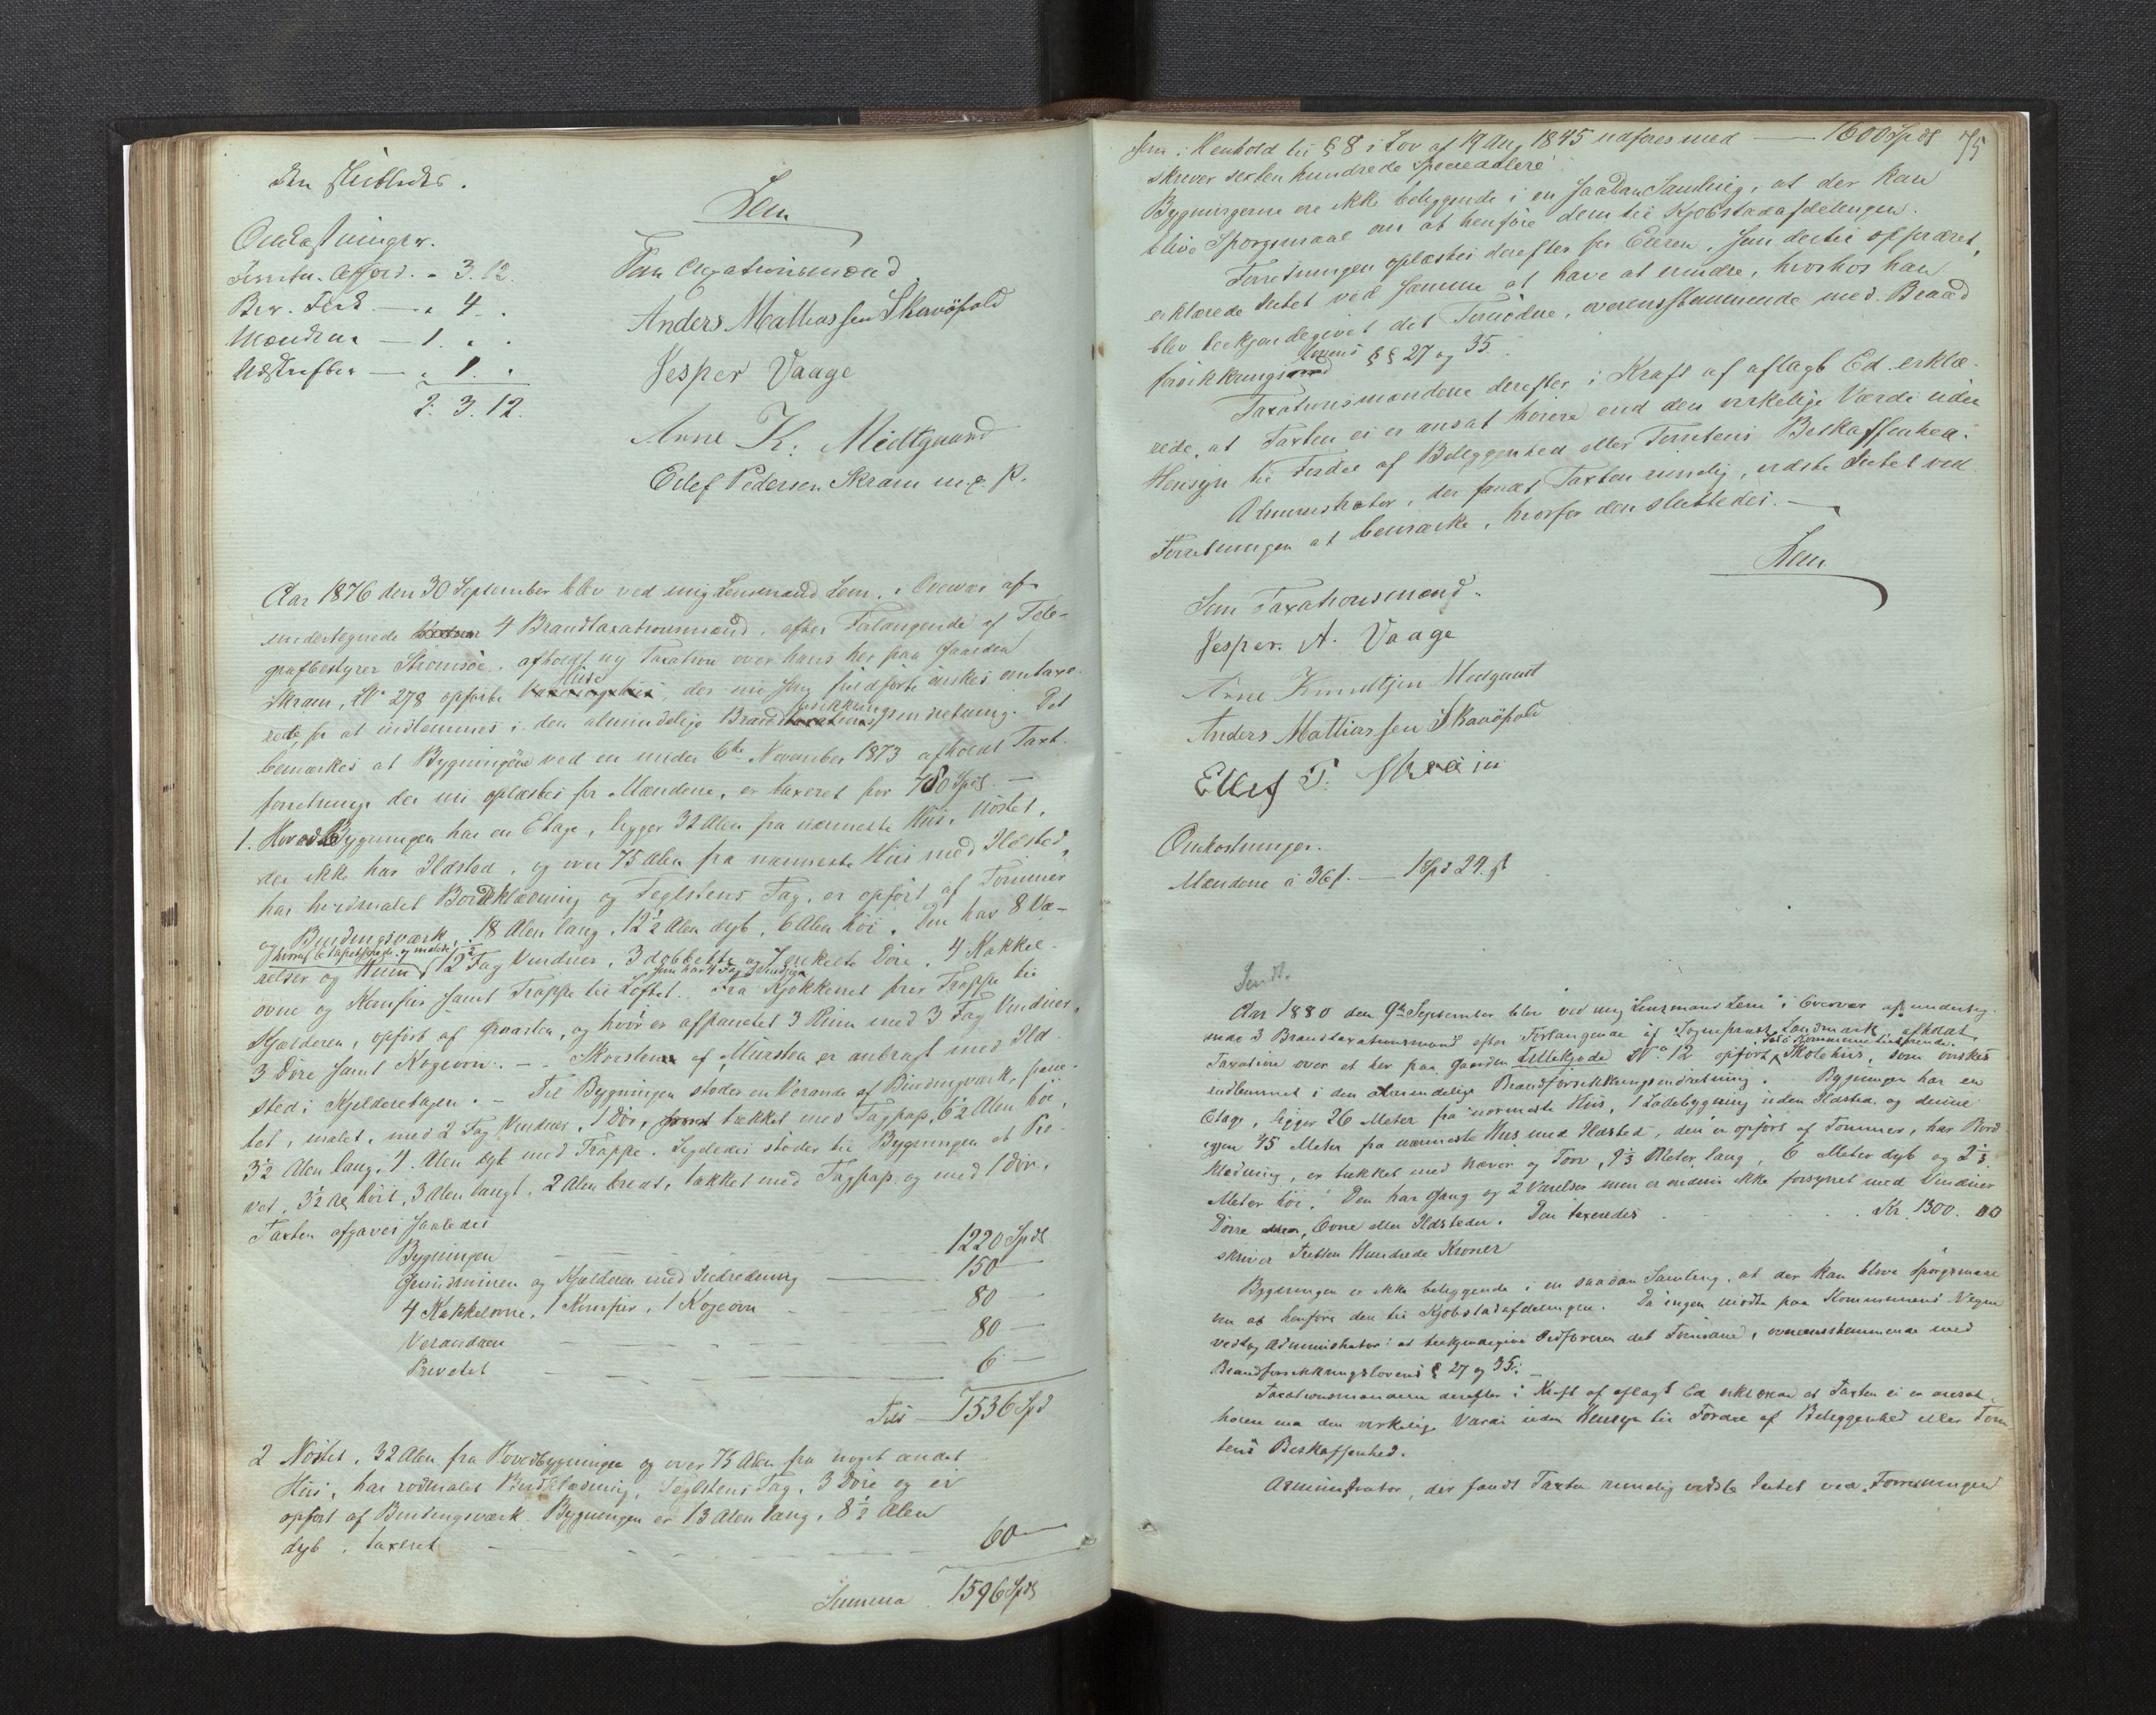 den sluttedes.
Omkostninger.
Lem
Forretn. Afford. " 3. 12.
Ber. Ford. — " 4 . .
Mændene — 1. " .
Udskriften — " 1. "
2. 3. 12.
Som Taxationsmænd
Anders Mathiassen Skavøpold
Jesper Vaage
Arne K: Midtgaard
Ellef Pedersen Skram m. p. P.
Aar 1876 den 30 September blev ved mig Lensmand Lem, i Overvær af
undertegnede 4 Brandtaxationsmænd, efter Forlangende af Tele-
grafbestyrer Strømsøe, afholdt ny Taxation over hans her paa Gaarden
Skram, No 278 opførte Huse, der nu ønskes omtaxe-
rede, for at indlemmes i den almindelige Brandforsikkringsindretning. Det
bemærkes at Bygningerne ved en under 6te November 1873 afholdt Taxt-
forretning, der nu oplæstes for Mændene, er taxeret for 780 Spd. —
1. Hovedbygningen har en Etage, ligger 32 Alen fra nærmeste Huus, Nøstet,
der ikke har Ildsted, og over 75 Alen fra nærmeste Huus med Ildsted,
har hvidmalet Bordklædning og Teglstens Tag, er opført af Tømmer
og Bindingsværk, 18 Alen lang, 12½ Alen dyb, 6 Alen høi. Den har 8 Væ-
hvoraf 6 tapetserede og malede,
relser og 12 Fag Vinduer, 3 dobbelte og 7 enkelte Døre, 4 Kakkel-
som har 4 Fag Vinduer
ovne og Komfur samt Trappe til Loftet. Fra Kjøkkenet fører Trappe til
Kjælderen, opført af Graasten, og hvor er afpanelet 3 Rum med 3 Fag Vinduer,
3 Døre samt Kogeovn. — Skorstene af Mursten er anbragt med Ild-
sted i Kjelderetagen. — Til Bygningen støder en Veranda af Bindingværk, pane-
let, malet, med 2 Fag Vinduer, 1 Dør, tækket med Tagpap, 6½ Alen høi,
3½ Alen lang, 4 Alen dyb med Trappe. Ligeledes støder til Bygningen et Pri-
vet, 3½ Al høit, 3 Alen langt, 2 Alen bredt, tækket med Tagpap og med 1 Dør.
Taxten afgaves saaledes
Bygningen — 1220 Spdl
Grundmuren og Kjælderen med Indredning — 150 —
4 Kakkelovne, 1 Komfur, 1 Kogeovn — 80 —
Verandaen — 80 —
Privetet — 6 —
Tils — 1536 Spd
2 Nøstet, 32 Alen fra Hovedbygningen og over 75 Alen fra noget andet
Huus, har rødmalet Bordklædning, Teglstens Tag, 3 Døre og er
opført af Bindingsværk. Bygningen er 13 Alen lang, 8½ Alen
dyb, taxeret — 60 —
Summa 1596 Spdl
75
som i Henhold til § 8 i Lov af 19 Aug 1845 udføres med — 1600 Spdl
skriver sexten hundrede Speciedalere
Bygningerne ere ikke beliggende i en saadan Samling, at der kan
blive Spørgsmaal om at henføre dem til Kjøbstadafdelingen.
Forretningen oplæstes derefter for Eieren, som dertil opfordret,
erklærede Intet ved samme at have at erindre, hvorhos han
blev bekjendtgivet det Fornødne, overensstemmende med Brand-
forsikkringslovens §§ 27 og 35.
Taxationsmændene derefter i Kraft af aflagt Ed erklæ-
rede, at Taxten ei er ansat høiere end den virkelige Værdi uden
Hensyn til Fordel af Beliggenhed eller Tomtens Beskaffenhed.
Administrator, der fandt Taxten rimelig, vidste Intet ved
Forretningen at bemærke, hvorfor den sluttedes. —
Lem
Som Taxationsmænd.
Jesper. A. Vaage
Arne Knudtzen Medgaard
Anders Mathiassen Skavøpold
Ellef P. Skram
Omkostninger.
Mændene à 36 s. — 1 Spd 24 s
Sendt.
Aar 1880 den 9de September blev ved mig Lensmand Lem i Overvær af underteg-
nede 3 Brandtaxationsmænd efter Forlangende af Sogneprest Landmark, afholdt
Kommune tilhørende
Taxation over et her paa Gaarden Lillekjøde No 12 opført Skolehus, som ønskes
indlemmet i den almindelige Brandforsikkringsindretning. Bygningen har en
Etage, ligger 26 Meter fra nærmeste Hus, 1 Ladebygning uden Ildsted og denne
igjen 45 Meter fra nærmeste Hus med Ildsted, den er opført af Tømmer, har Bord-
klædning, er tækket med Næver og Torv, 9⅓ Meter lang, 6 Meter dyb og 2⅓
Meter høi. Den har Gang og 2 Værelser men er endnu ikke forsynet med Vinduer
Døre, Ovne eller Ildsteder. Den taxeredes . . . Kr. 1300. 00
skriver Tretten Hundrede Kroner
Bygningen er ikke beliggende i en saadan Samling, at der kan blive Spørgsmaal
om at henføre den til Kjøbstadafdelingen. Da ingen mødte paa Kommunens Vegne
vedtog Administrator at bekjendtgive det Fornødne, overensstemmende med
Brandforsikkringslovens § 27 og 35. —
Taxationsmændene derefter i Kraft af aflagt Ed erklærede at Taxten ei er ansat
høiere end den virkelige Værdi uden Hensyn til Fordel af Beliggenhed eller Tom-
tens Beskaffenhed.
Administrator, der fandt Taxten rimelig vidste Intet ved Forretningen